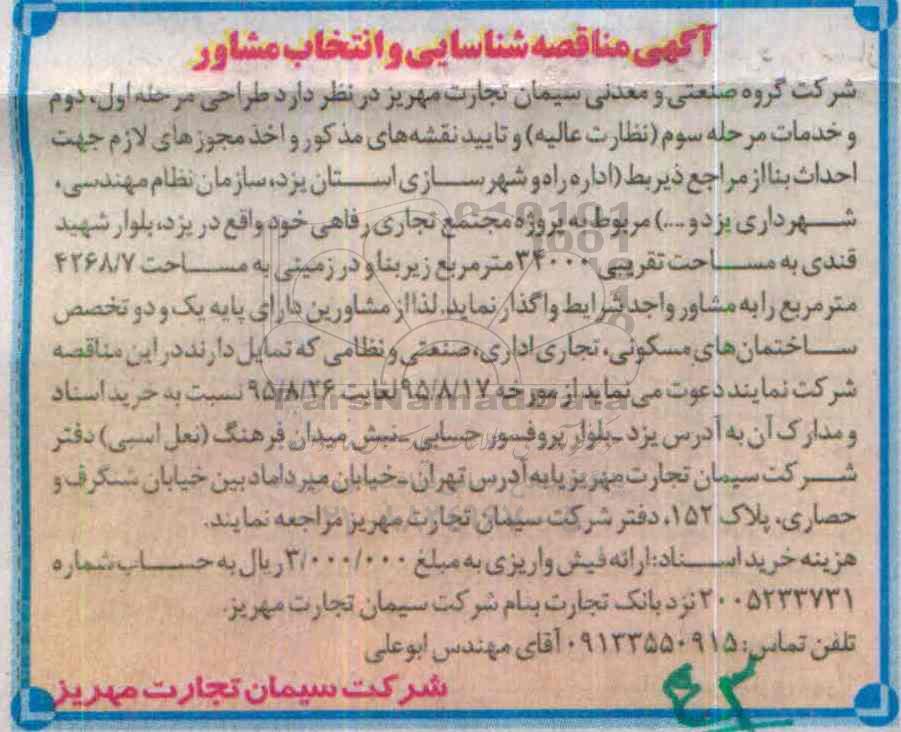 آگهی مناقصه شناسایی و انتخاب مشاور
شرکت گروه صنعتی و معدنی سیمان تجارت مهریز در نظر دارد طراحی مرحله اول، دوم
و خدمات مرحله سوم (نظارت عالیه) و تایید نقشه‌های مذکور و اخذ مجوزهای لازم جهت
احداث بنا از مراجع ذیربط (اداره راه و شهرسازی استان یزد، سازمان نظام مهندسی،
شهرداری یزد و ....) مربوط به پروژه مجتمع تجاری رفاهی خود واقع در یزد، بلوار شهید
قندی به مساحت تقریبی ۳۴۰۰۰ مترمربع زیربنا و در زمینی به مساحت ۴۲۶۸/۷
مترمربع را به مشاور واجد شرایط واگذار نماید. لذا از مشاورین دارای پایه یک و دو تخصص
ساختمان‌های مسکونی، تجاری اداری، صنعتی و نظامی که تمایل دارند در این مناقصه
شرکت نمایند دعوت می‌نماید از مورخه ۹۵/۸/۱۷ لغایت ۹۵/۸/۲۶ نسبت به خرید اسناد
و مدارک آن به آدرس یزد - بلوار پروفسور حسابی - نبش میدان فرهنگ (نعل اسبی) دفتر
شرکت سیمان تجارت مهریز یا به آدرس تهران - خیابان میرداماد بین خیابان شنگرف و
حصاری، پلاک ۱۵۲، دفتر شرکت سیمان تجارت مهریز مراجعه نمایند.
هزینه خرید اسناد: ارائه فیش واریزی به مبلغ ۳/۰۰۰/۰۰۰ ریال به حساب شماره
۲۰۰۵۲۳۳۷۳۱ نزد بانک تجارت بنام شرکت سیمان تجارت مهریز.
تلفن تماس: ۰۹۱۳۳۵۵۰۹۱۵ آقای مهندس ابوعلی
شرکت سیمان تجارت مهریز
ParsNamadData